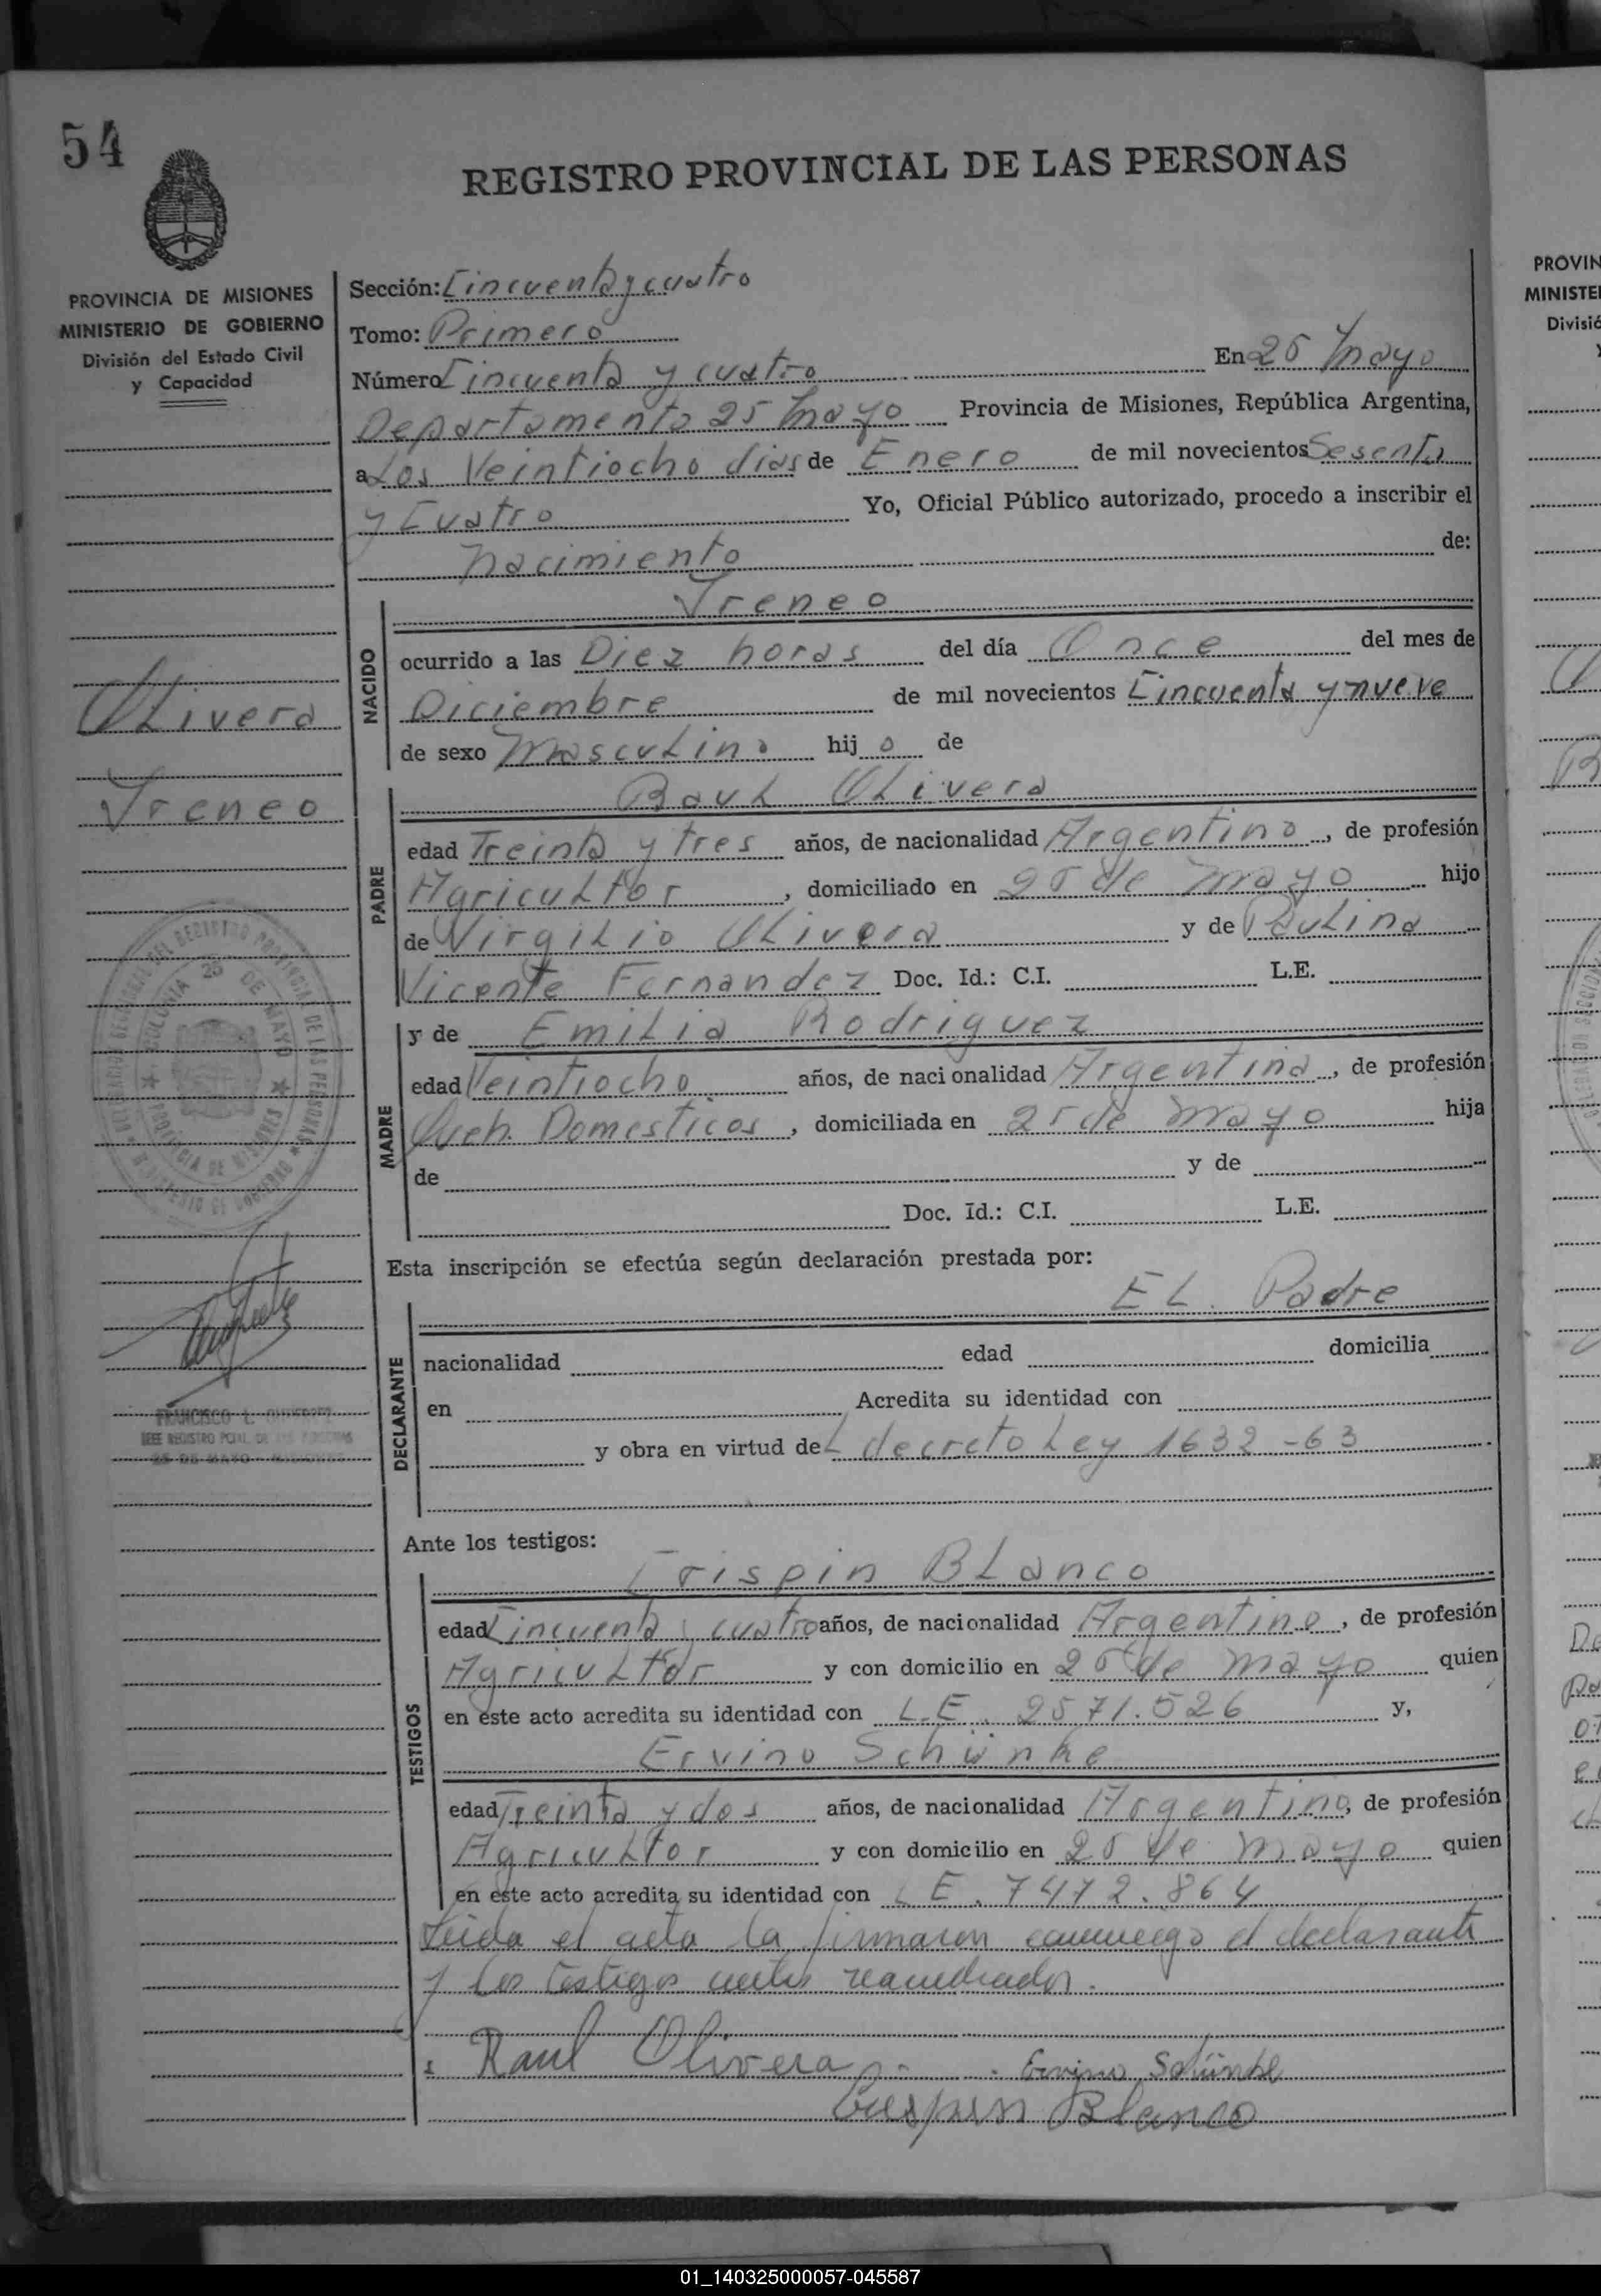 54
REGISTRO PROVINCIAL DE LAS PERSONAS
PROVINCIA DE MISIONES
MINISTERIO DE GOBIERNO
División del Estado Civil
y Capacidad
Sección: Cincuenta y cuatro
Tomo: Primero
Número Cincuenta y cuatro En 25 Mayo
Departamento 25 Mayo Provincia de Misiones, República Argentina,
a Los Veintiocho dias de Enero de mil novecientos Sesenta
y Cuatro Yo, Oficial Público autorizado, procedo a inscribir el
Nacimiento de:
Ireneo
NACIDO
ocurrido a las Diez horas del día Once del mes de
Diciembre de mil novecientos Cincuenta y nueve
de sexo Masculino hijo de
Olivera
Ireneo
Raul Olivera
PADRE
edad Treinta y tres años, de nacionalidad Argentino, de profesión
Agricultor, domiciliado en 25 de Mayo hijo
de Virgilio Olivera y de Paulina
Vicente Fernandez Doc. Id.: C.I. L.E.
y de Emilia Rodriguez
MADRE
edad Veintiocho años, de nacionalidad Argentina, de profesión
Queh. Domesticos, domiciliada en 25 de Mayo hija
de y de
Doc. Id.: C.I. L.E.
Esta inscripción se efectúa según declaración prestada por:
EL Padre
DECLARANTE
nacionalidad edad domicilia
en Acredita su identidad con
y obra en virtud del decreto Ley 1632-63
FRANCISCO L.
JEFE REGISTRO PCIAL. DE LAS PERSONAS
25 DE MAYO - MISIONES
Ante los testigos:
Crispin Blanco
TESTIGOS
edad Cincuenta y cuatro años, de nacionalidad Argentino, de profesión
Agricultor y con domicilio en 25 de Mayo quien
en este acto acredita su identidad con L.E. 2571.526 y,
Ervino Schünke
edad Treinta y dos años, de nacionalidad Argentino, de profesión
Agricultor y con domicilio en 25 de Mayo quien
en este acto acredita su identidad con L.E. 7472.864
Leida el acta la firmaron conmigo el declarante
y los testigos
Raul Olivera
Ervino Schünke
Crispin Blanco
COLONIA 25 DE MAYO
PROVINCIA DE MISIONES
PROVIN
MINISTE
Divisió
01_140325000057-045587